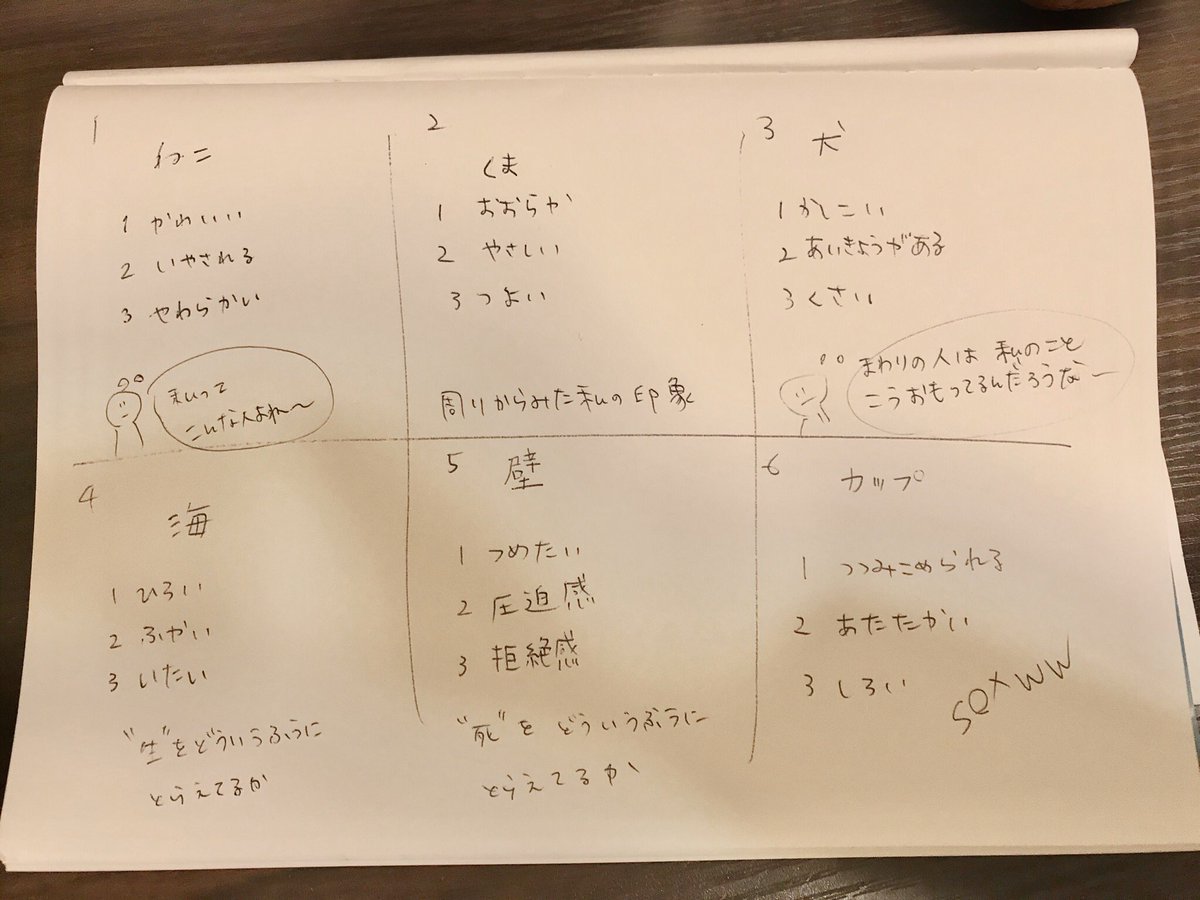 1
ねこ
1 かわいい
2 いやされる
3 やわらかい
私って
こんな人よね〜
2
くま
1 おおらか
2 やさしい
3 つよい
周りからみた私の印象
3
犬
1 かしこい
2 あいきょうがある
3 くさい
まわりの人は 私のこと
こうおもってるんだろうなー
4
海
1 ひろい
2 ふかい
3 いたい
"生"をどういうふうに
とらえてるか
5
壁
1 つめたい
2 圧迫感
3 拒絶感
"死"を どういうふうに
とらえてるか
6
カップ
1 つつみこめられる
2 あたたかい
3 しろい
sexww